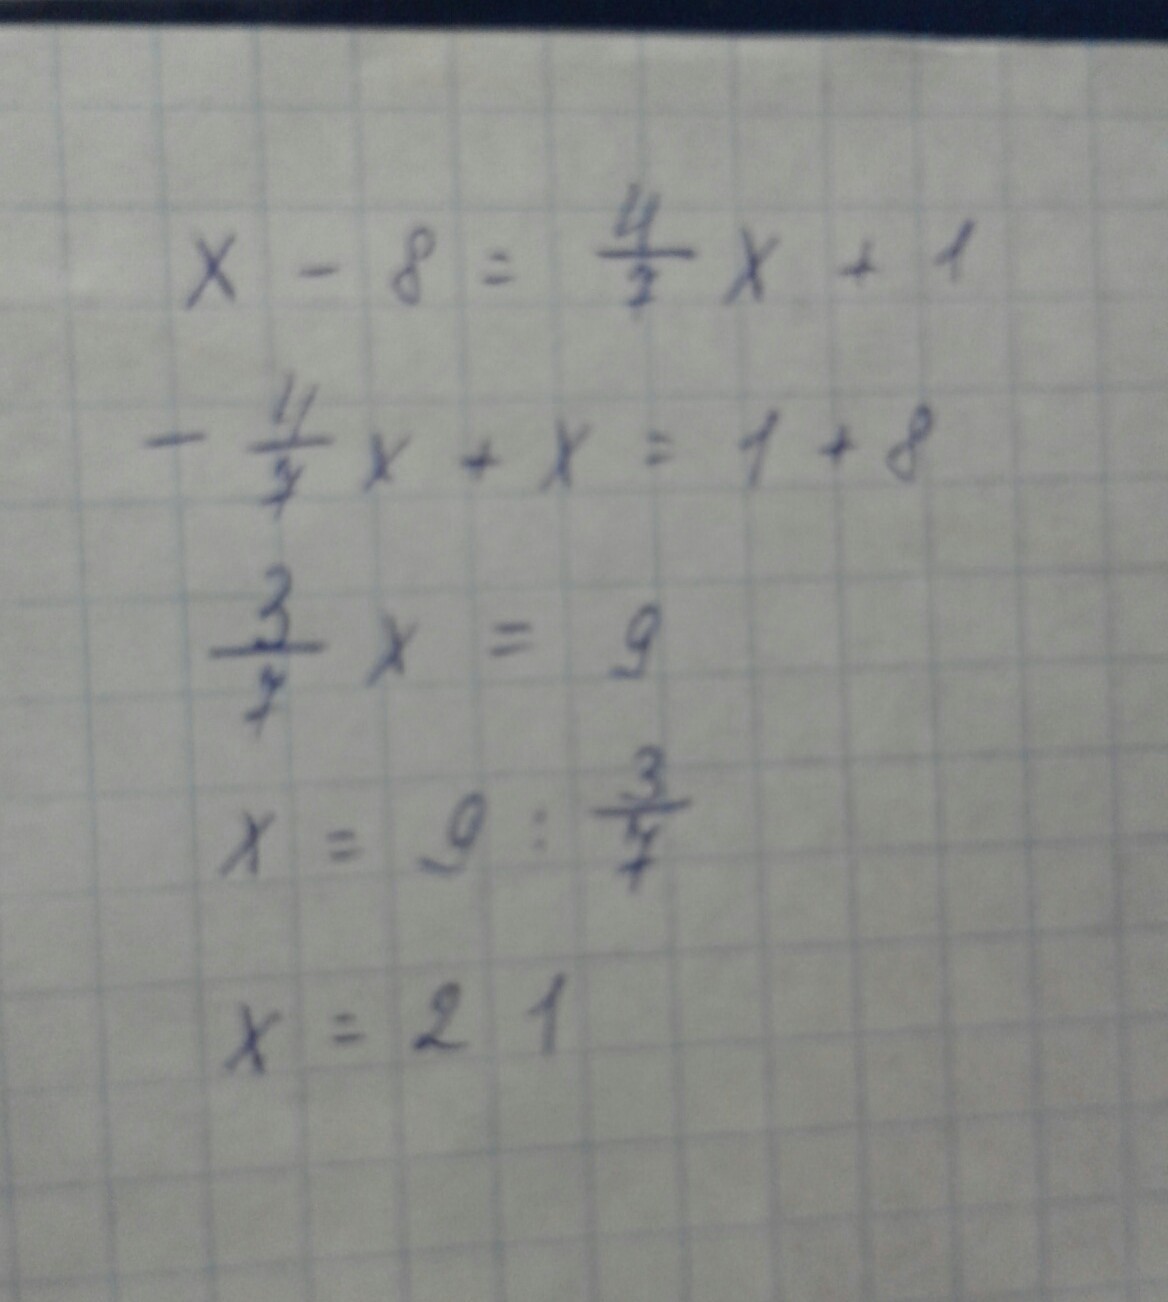 x - 8 = 4/7 x + 1
- 4/7 x + x = 1 + 8
3/7 x = 9
x = 9 : 3/7
x = 21